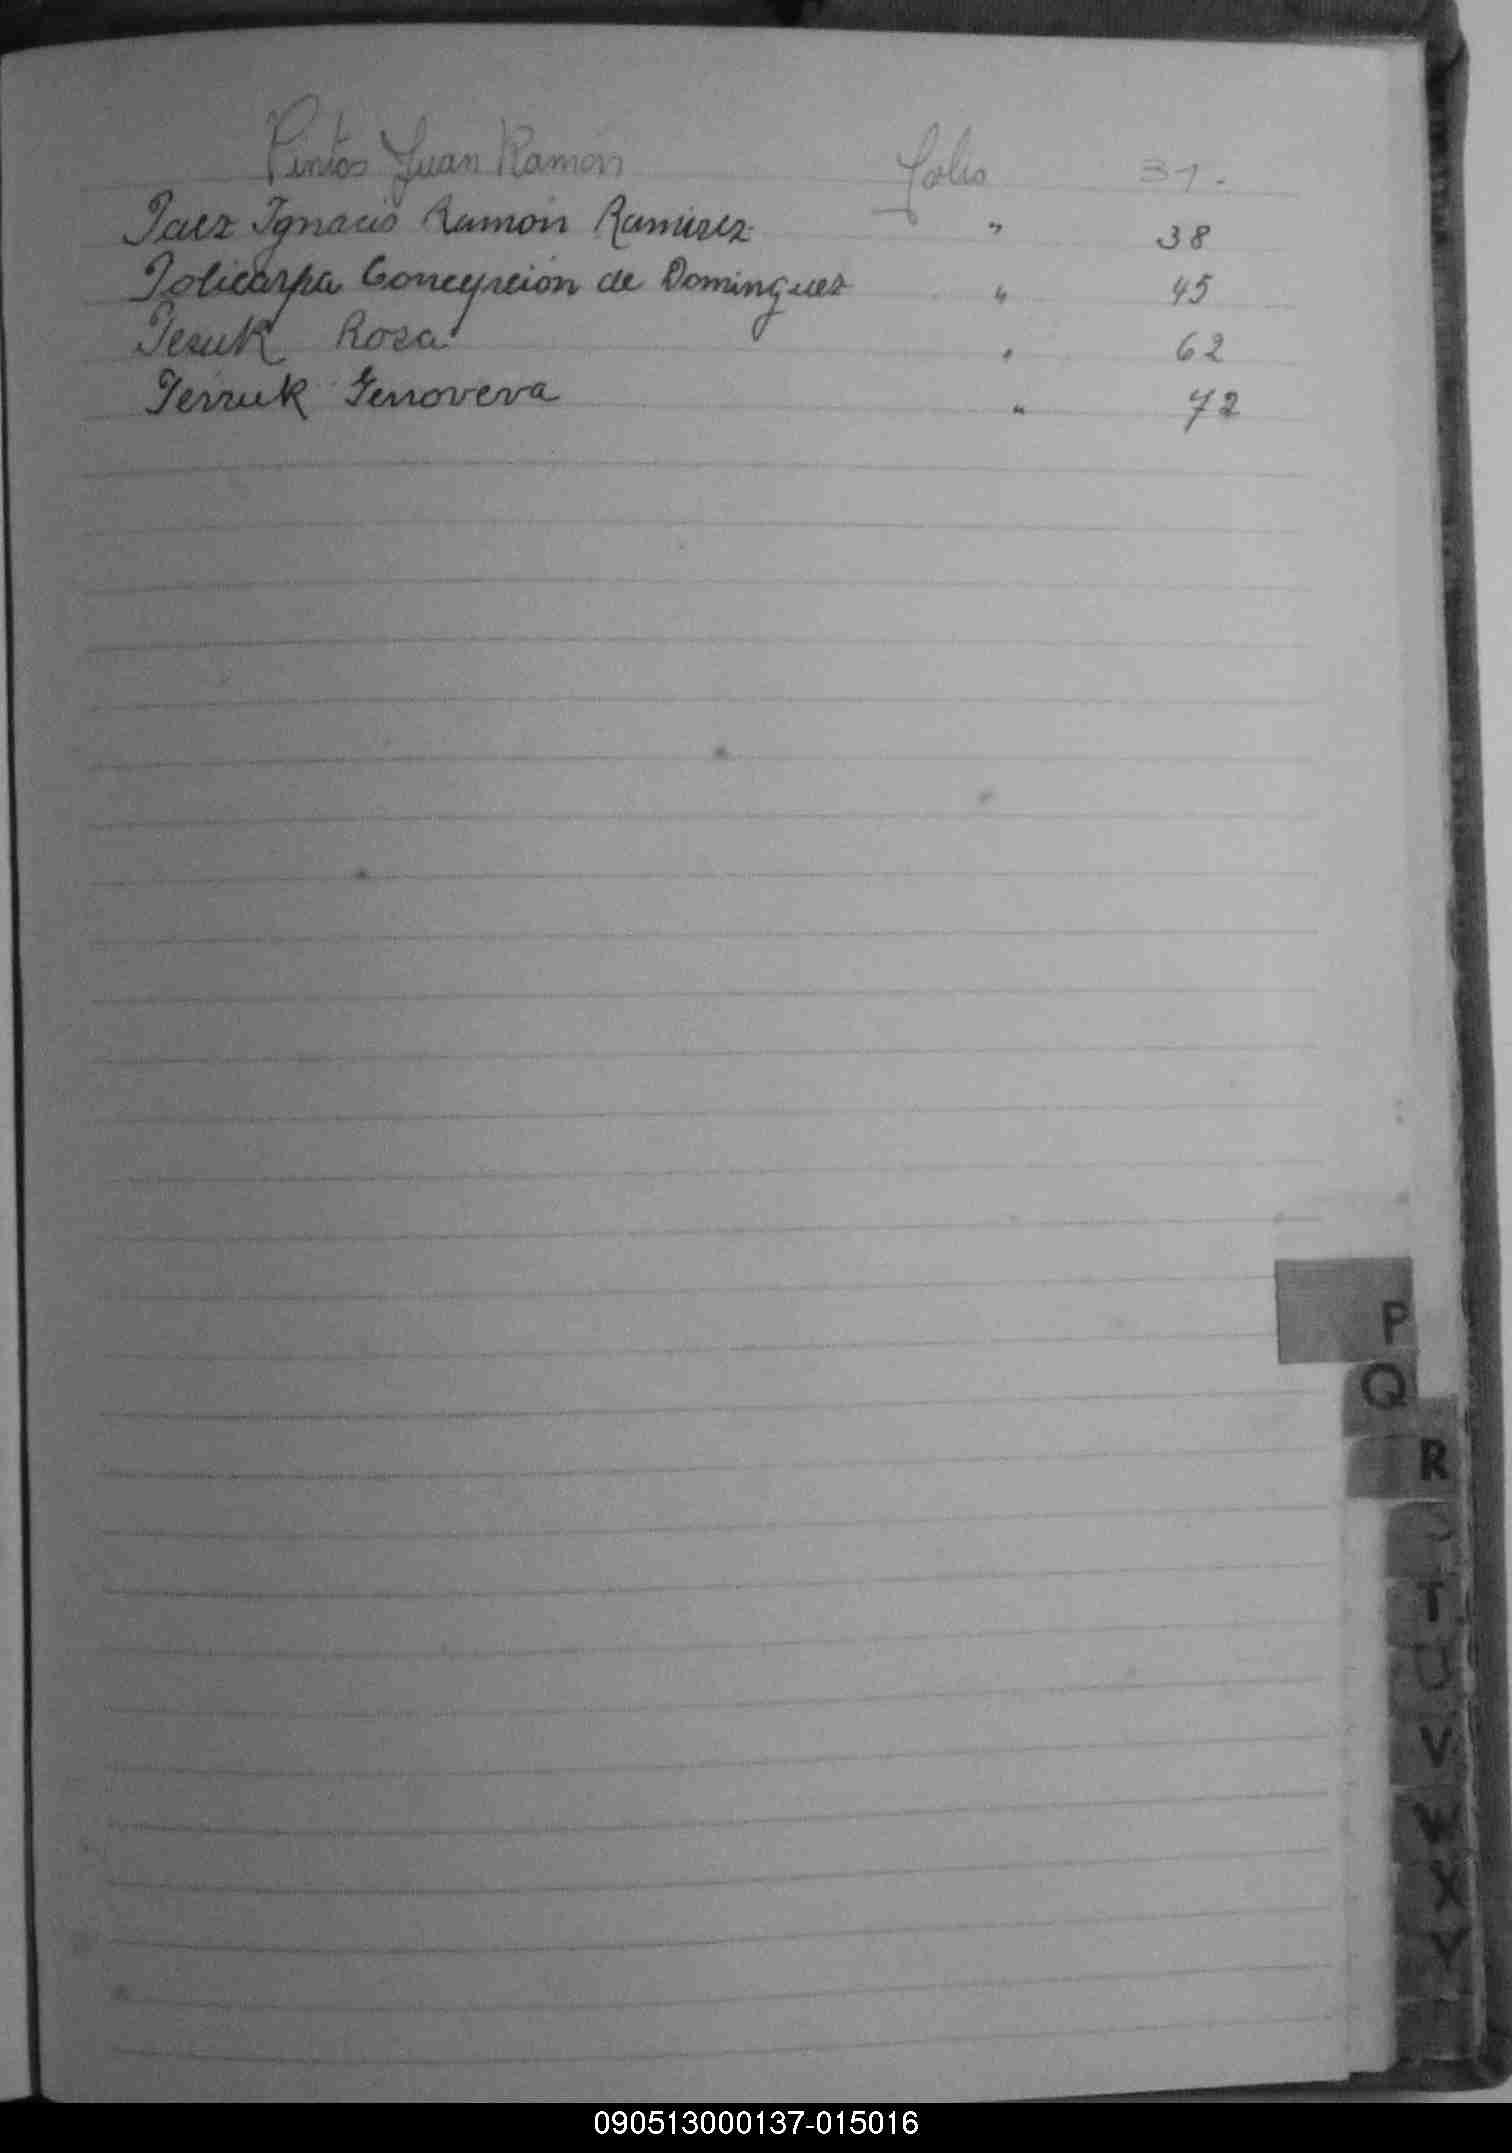 Pintos Juan Ramón Folio 31.-
Paez Ignacio Ramón Ramirez " 38
Policarpa Concepción de Dominguez " 45
Pesuk Rosa " 62
Genoveva " 72
P
Q
R
S
T
U
V
W
X
Y
090513000137-015016